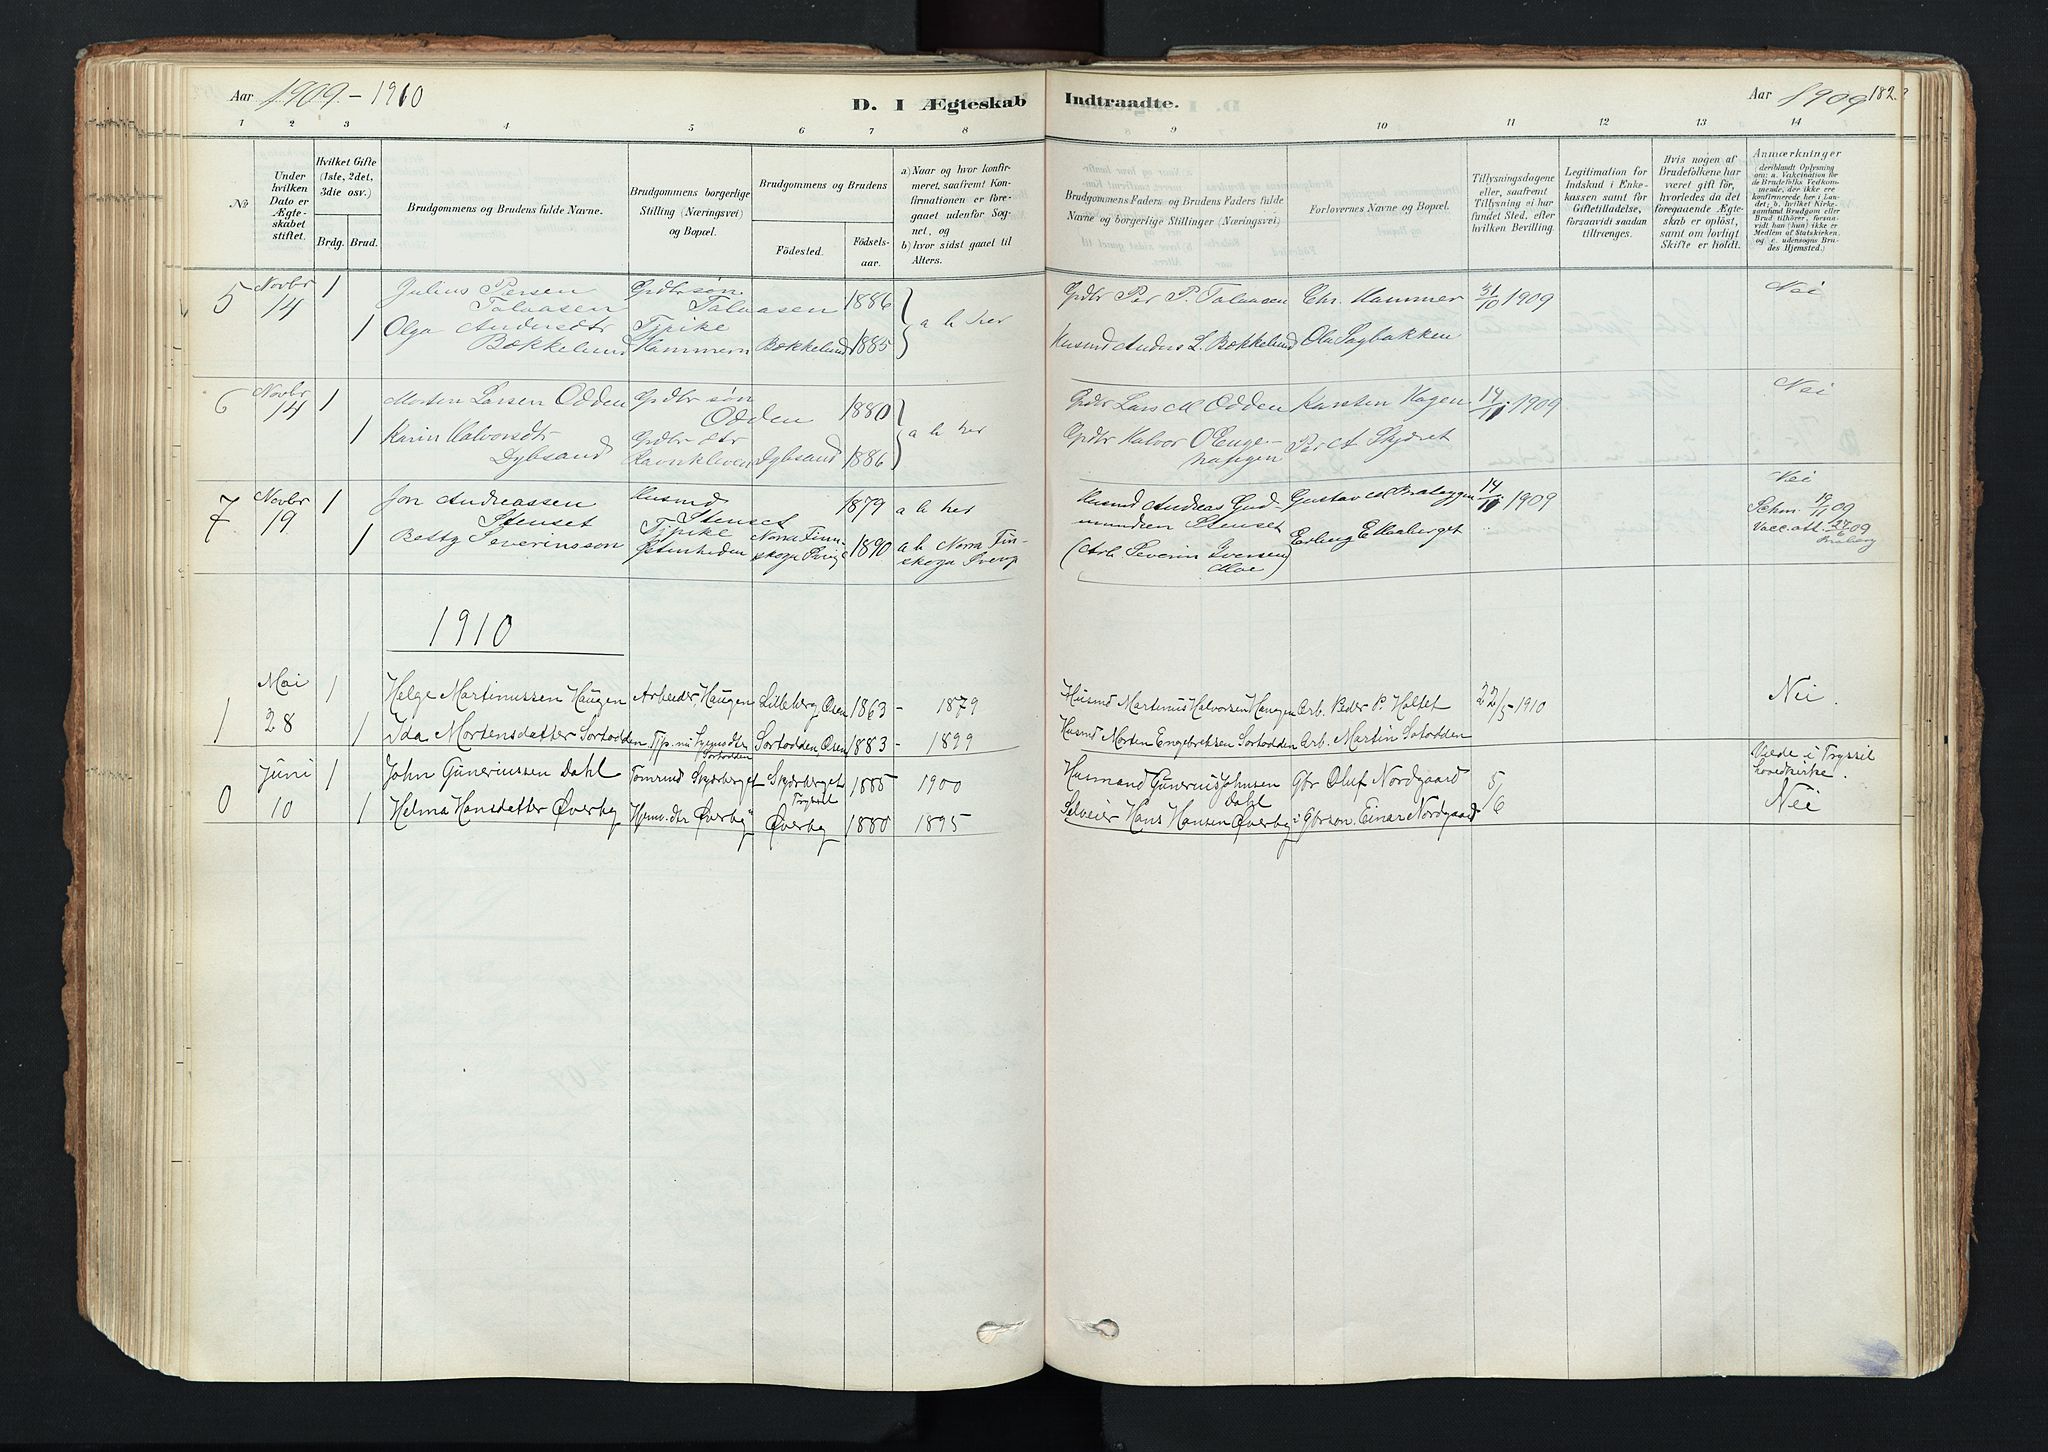 Aar 1909 - 1910
D. I Ægteskab Indtraadte.
Aar 1909 182.
1 2 3 4 5 6 7 8 9 10 11 12 13 14
No
Under hvilken Dato er Ægteskabet stiftet.
Hvilket Gifte (1ste, 2det, 3die osv.)
Brdg. Brud.
Brudgommens og Brudens fulde Navne.
Brudgommens borgerlige Stilling (Næringsvei) og Bopæl.
Brudgommens og Brudens
Fødested.
Fødselsaar.
a) Naar og hvor konfirmeret, saafremt Konfirmationen er foregaaet udenfor Sognet, og
b) hvor sidst gaaet til Alters.
Brudgommens Faders og Brudens Faders fulde Navne og borgerlige Stillinger (Næringsvei).
Forlovernes Navne og Bopæl.
Tillysningsdagene eller, saafremt Tillysning ei har fundet Sted, efter hvilken Bevilling.
Legitimation for Indskud i Enkekassen samt for Giftetilladelse, forsaavidt saadan tiltrænges.
Hvis nogen af Brudefolkene har været gift før, hvorledes da det foregaaende Ægteskab er opløst, samt om lovligt Skifte er holdt.
Anmærkninger
deriblandt Oplysning om: a. Vakcination for de Brudefolks Vedkommende, der ikke ere konfirmerede her i Landet; b. hvilket Kirkesamfund Brudgom eller Brud tilhører, forsaavidt han (hun) ikke er Medlem af Statskirken, og c. udensogns Brudes Hjemsted.)
5 Novbr 14 1 Julius Persen Talaasen Grdbr søn Talaasen 1886 a b her Grdbr Per P. Talaasen Chr. Hammer 31/10 1909 Nei
1 Olga Andersdtr Bækkelund Tjpike Hammern Bækkelund 1885 Husmd Anders L. Bækkelund Ola Sagbakken
6 Novbr 14 1 Morten Larsen Odden Grdbr søn Odden 1880 a b her Grdbr Lars M Odden Karsten Hagen 14/11 1909 Nei
1 Karin Halvorsdtr Dybsand Grdbr dtr Dybsand 1886 Grdbr Halvor O Enge- Per A Skjdret
7 Novbr 19 1 Jon Andreassen Stenset Husmd Stenset 1879 a b her Husmd Andreas Gudmundsen Stenset Gustav 14/11 1909 Nei
1 Betty Severinsson Tjpike Norra Finskoga Sverige 1890 a b Norra Finskoga Sverg (Arb Severin Iversen Moe) Erling
1910
1 Mai 28 1 Helge Martinussen Haugen Arbeider, Haugen Lilleberg, Osen 1863 - 1879 Husmd Martinus Halvorsen Haugen Arb. Peder P. Holtet 22/5 - 1910 Nei.
1 Ida Mortensdatter Sortodden Sortodden Osen 1883 - 1899 Husmd Morten Engebretsen Sortodden Arb. Martin Sotodden
0 Juni 10 1 John Guneriussen Dahl Tømrmd Skjærberget Skjærberget Trysil 1885 1900 Husmand Gunerius Johnsen Dahl Gbr Oluf Nordgaard 5/6 Viede i Trysil hovedkirke.
1 Helma Hansdatter Øverby dtr Øverby Øverby 1880 1895 Selveier Hans Hansen Øverby Gbrsøn. Einar Nordgaard Nei